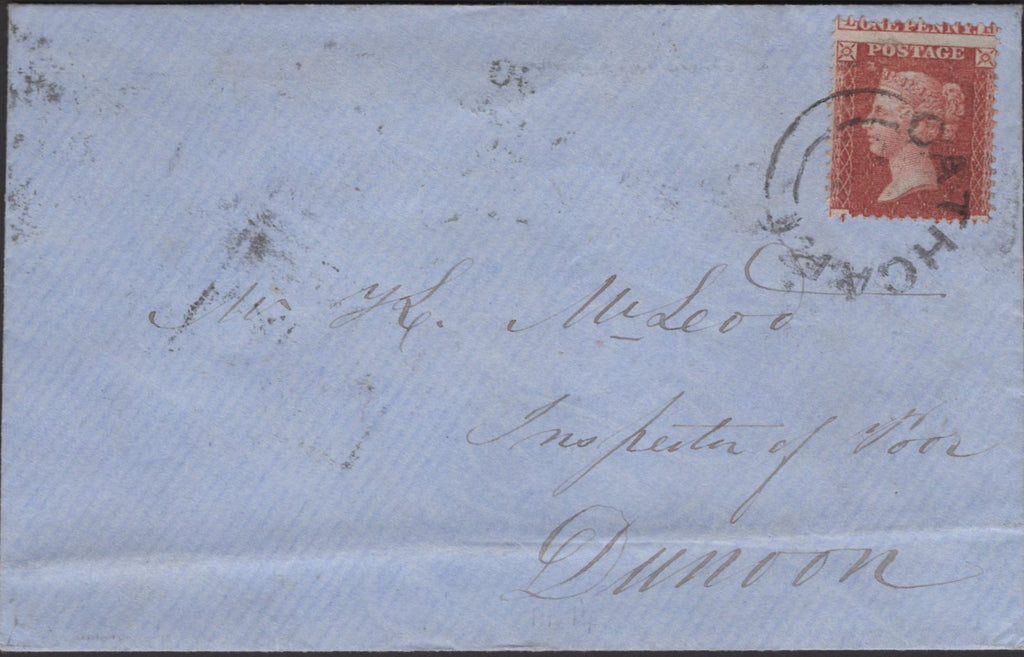 ONE PENNY.
POSTAGE
CATHCART
Mr K. McLeod
Inspector of Poor
Dunoon